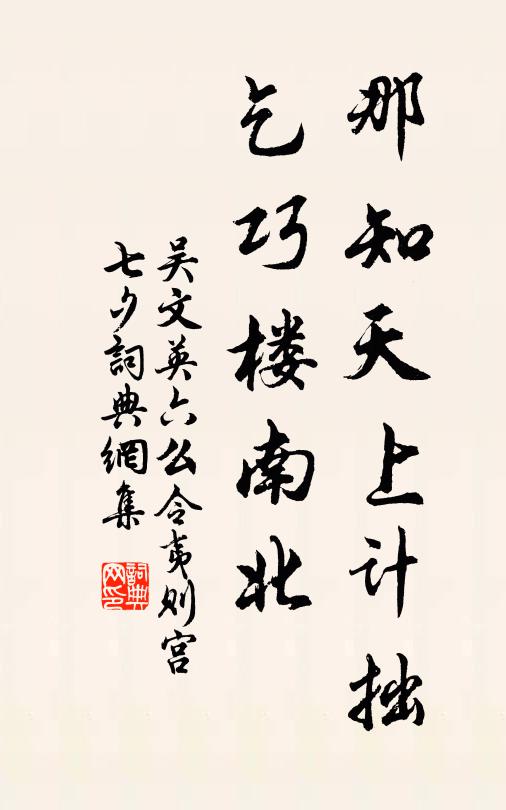 那知天上计拙
乞巧楼南北
吴文英六么令夷则宫
七夕詞典網集
詞典网印